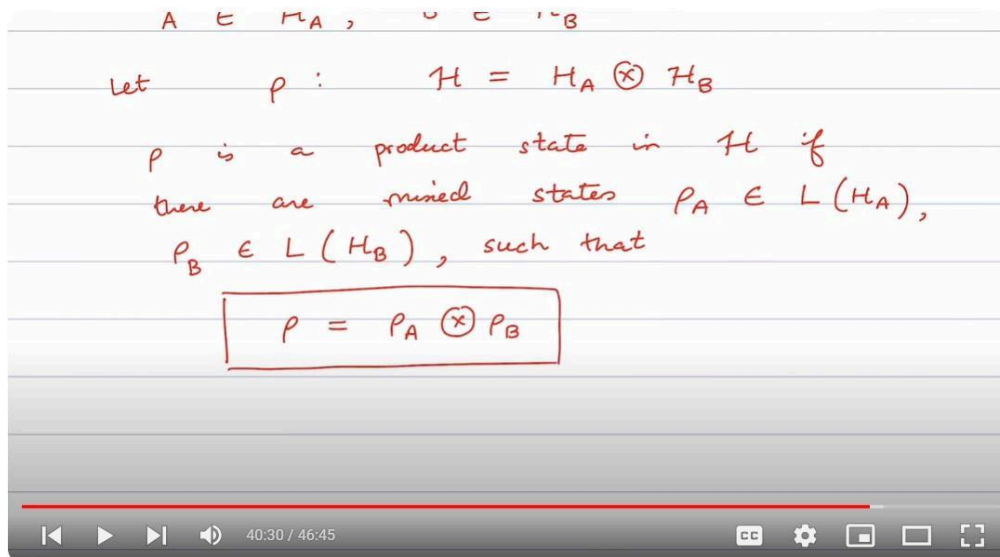 A ∈ H_A ,
Let ρ : H = H_A ⊗ H_B
ρ is a product state in H if
there are mixed states ρ_A ∈ L (H_A),
ρ_B ∈ L (H_B), such that
ρ = ρ_A ⊗ ρ_B
40:30 / 46:45
CC